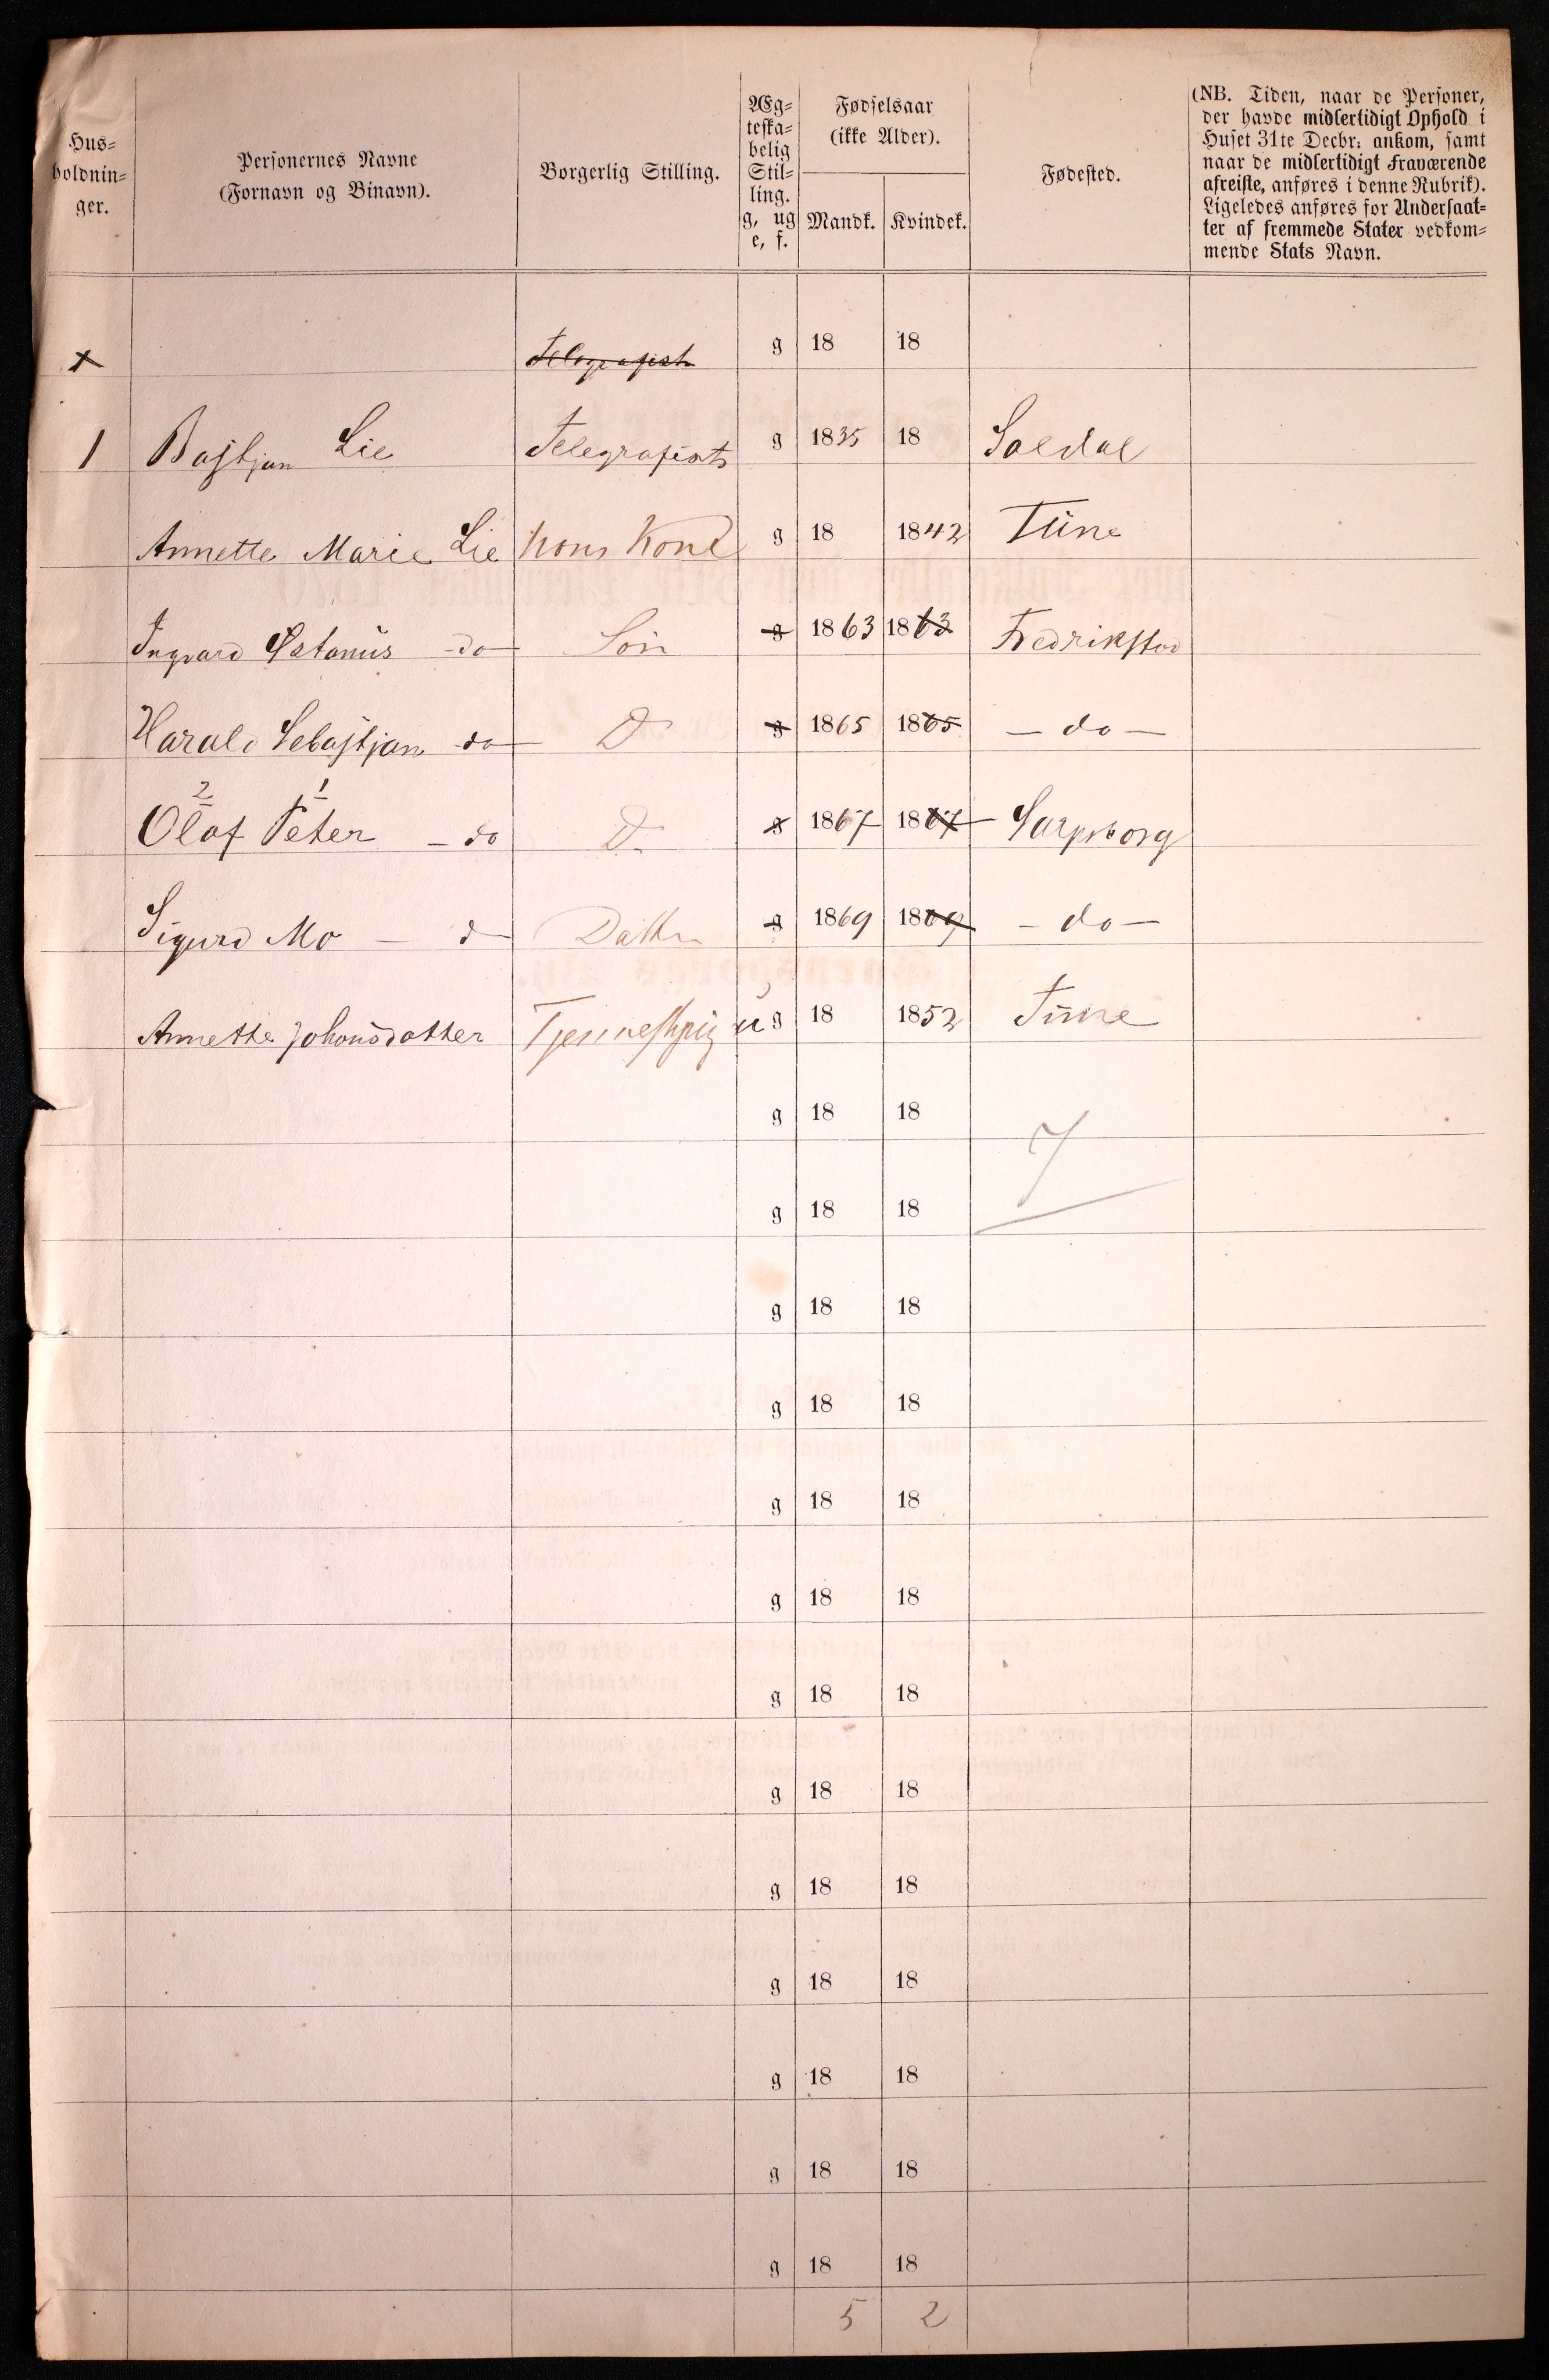 Hus=
holdnin=
ger.
Personernes Navne
(Fornavn og Binavn).
Borgerlig Stilling.
Æg=
teska=
belig
Stil=
ling.
g, ug
e, f.
Fødselsaar
(ikke Alder).
Mandk. Kvindek.
Fødested.
(NB. Tiden, naar de Personer,
der havde midlertidigt Ophold i
Huset 31te Decbr. ankom, samt
naar de midlertidigt Fraværende
afreiste, anføres i denne Rubrik).
Ligeledes anføres for Undersaat=
ter af fremmede Stater vedkom=
mende Stats Navn.
x Telegrafist g 18 18
1 Bastjan Lie Telegrafist g 1835 18 Soldal
Annette Marie Lie hans Kone g 18 1842 Tune
Ingvard do Søn g 1863 1863 Fredrikstad
Harald Sebastjan do D g 1865 1865 – do –
2 1
Olaf Peter – do D g 1867 1867 Sarpsborg
Sigurd Mo – d Datter g 1869 1869 – do –
Annette Johansdatter Tjenestpig ug 18 1852 Tune
g 18 18
7
g 18 18
g 18 18
g 18 18
g 18 18
g 18 18
g 18 18
g 18 18
g 18 18
g 18 18
g 18 18
g 18 18
g 18 18
5 2